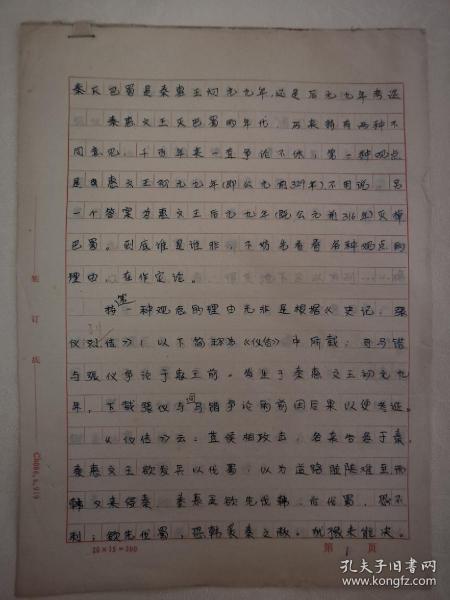 秦灭巴蜀是秦惠王初元九年,还是后元九年考证
秦惠文王灭巴蜀的年代,历来持有两种不
同意见,千百年来一直争论不休;第一种观点
是秦惠文王初元九年(即公元前329年)不用说 另
一个答案为惠文王后元九年(既公元前316年)灭掉
巴蜀。到底谁是谁非 不妨先看看各种观点的
理由 以在作定论。
持这一种观点的理由无非是根据《史记:张
仪列传》(以下简称为《仪传》中所载:司马错
与张仪争论于惠王前。发生于秦惠文王初元九
年,下载张仪与司马错争论的前因后果以便考证。
《仪传》云:苴侯相攻击,各来告急于秦。
秦惠文王欲发兵以伐蜀,以为道路险陕难至而
韩又来侵秦 秦惠王欲先伐韩,后伐蜀,恐不
利;欲先伐蜀,恐韩袭秦之敝。犹豫未能决。
20×15=300
第1页
装订线
孔夫子旧书网
book.kongfz.com